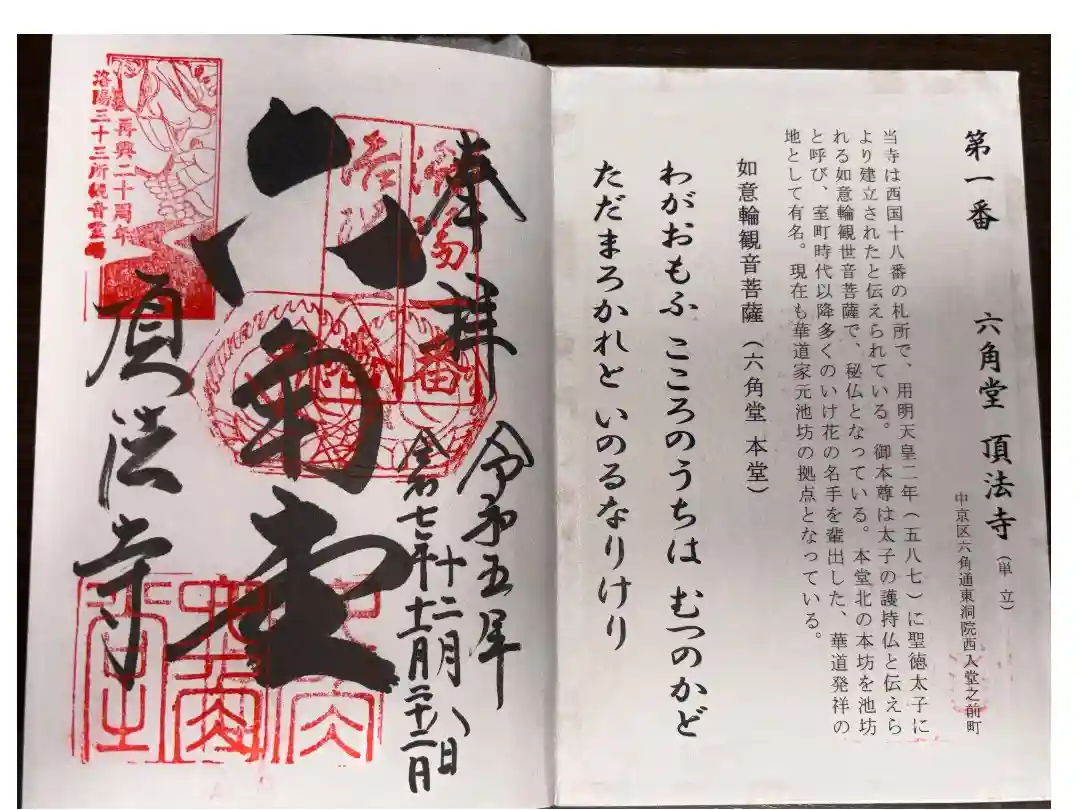 第一番 六角堂 頂法寺（単立）
中京区六角通東洞院西入堂之前町
当寺は西国十八番の札所で、用明天皇二年（五八七）に聖徳太子に
より建立されたと伝えられている。御本尊は太子の護持仏と伝えら
れる如意輪観世音菩薩で、秘仏となっている。本堂北の本坊を池坊
と呼び、室町時代以降多くのいけ花の名手を輩出した、華道発祥の
地として有名。現在も華道家元池坊の拠点となっている。
如意輪観音菩薩（六角堂 本堂）
わがおもふ こころのうちは むつのかど
ただまろかれと いのるなりけり
奉拝 令和五年
十二月八日
令和七年十二月二十二日
六角堂
頂法寺
再興二十周年
洛陽三十三所観音霊場
洛陽
第一番